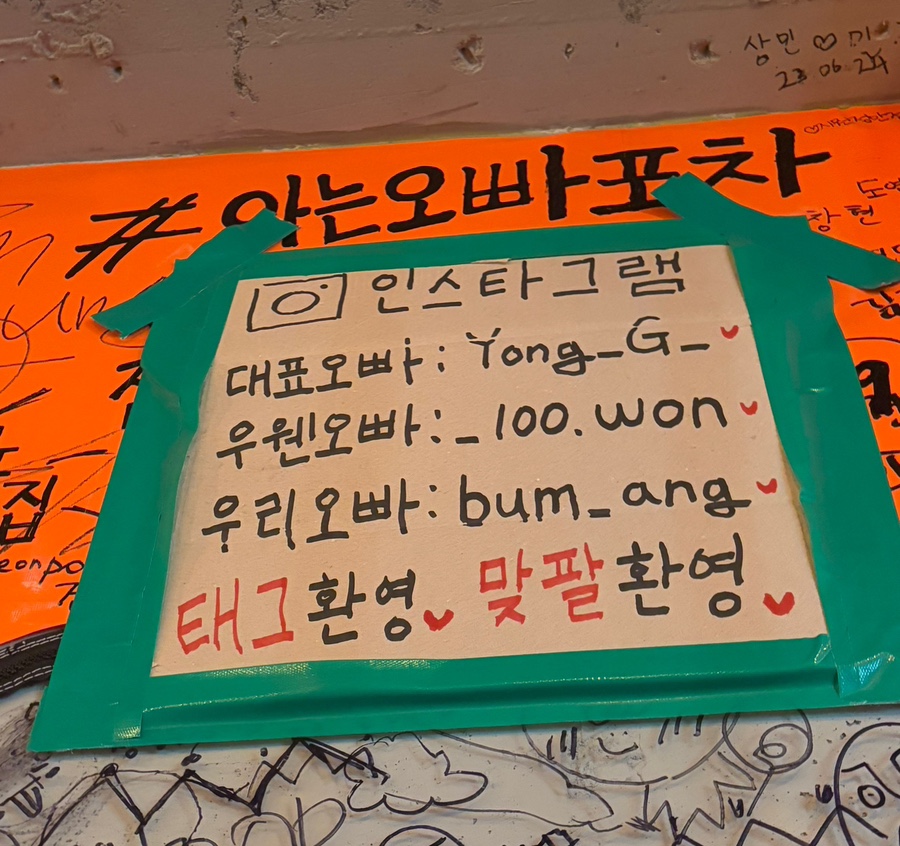 상민 ♡ 미
23 06 24
#아는오빠포차
도영
창현
인스타그램
대표오빠 : Yong_G_
우웬오빠 : _100.won
우리오빠 : bum_ang
태그환영♥ 맞팔환영♥
집